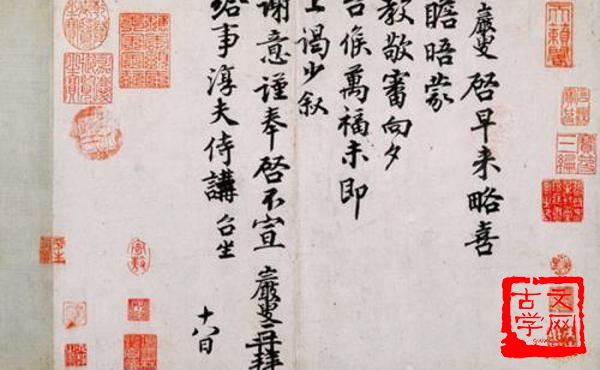 巖叟啓早来略喜
瞻晤蒙
教敬審向夕
台候萬福未即
上謁少叙
謝意謹奉啓不宣 巖叟再拜
給事淳夫侍講 台坐
十八日
天籟閣
寶笈三編
古文学网